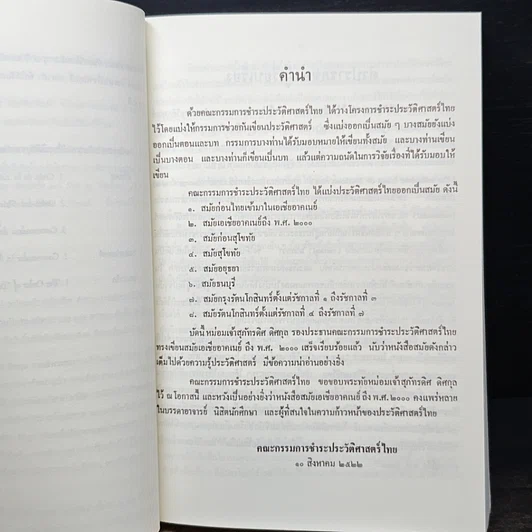 คำนำ
ด้วยคณะกรรมการชำระประวัติศาสตร์ไทย ได้วางโครงการชำระประวัติศาสตร์ไทย
ไว้โดยแบ่งให้กรรมการช่วยกันเขียนประวัติศาสตร์ ซึ่งแบ่งออกเป็นสมัย ๆ บางสมัยยังแบ่ง
ออกเป็นตอนและบท กรรมการบางท่านได้รับมอบหมายให้เขียนทั้งสมัย และบางท่านเขียน
เป็นบางตอน และบางท่านก็เขียนเป็นบท แล้วแต่ความถนัดในการวิจัยเรื่องที่ได้รับมอบให้
เขียน
คณะกรรมการชำระประวัติศาสตร์ไทย ได้แบ่งประวัติศาสตร์ไทยออกเป็นสมัย ดังนี้
๑. สมัยก่อนไทยเข้ามาในเอเชียอาคเนย์
๒. สมัยเอเชียอาคเนย์ถึง พ.ศ. ๒๐๐๐
๓. สมัยก่อนสุโขทัย
๔. สมัยสุโขทัย
๕. สมัยอยุธยา
๖. สมัยธนบุรี
๗. สมัยกรุงรัตนโกสินทร์ตั้งแต่รัชกาลที่ ๑ ถึงรัชกาลที่ ๓
๘. สมัยรัตนโกสินทร์ตั้งแต่รัชกาลที่ ๔ ถึงรัชกาลที่ ๗
บัดนี้หม่อมเจ้าสุภัทรดิศ ดิศกุล รองประธานคณะกรรมการชำระประวัติศาสตร์ไทย
ทรงเขียนสมัยเอเชียอาคเนย์ ถึง พ.ศ. ๒๐๐๐ เสร็จเรียบร้อยแล้ว นับว่าหนังสือสมัยดังกล่าว
เต็มไปด้วยความรู้ประวัติศาสตร์ มีข้อความน่าอ่านอย่างยิ่ง
คณะกรรมการชำระประวัติศาสตร์ไทย ขอขอบพระทัยหม่อมเจ้าสุภัทรดิศ ดิศกุล
ไว้ ณ โอกาสนี้ และหวังเป็นอย่างยิ่งว่าหนังสือสมัยเอเชียอาคเนย์ถึง พ.ศ.๒๐๐๐ คงแพร่หลาย
ในบรรดาอาจารย์ นิสิตนักศึกษา และผู้ที่สนใจในความก้าวหน้าของประวัติศาสตร์ไทย
คณะกรรมการชำระประวัติศาสตร์ไทย
๑๐ สิงหาคม ๒๕๒๒